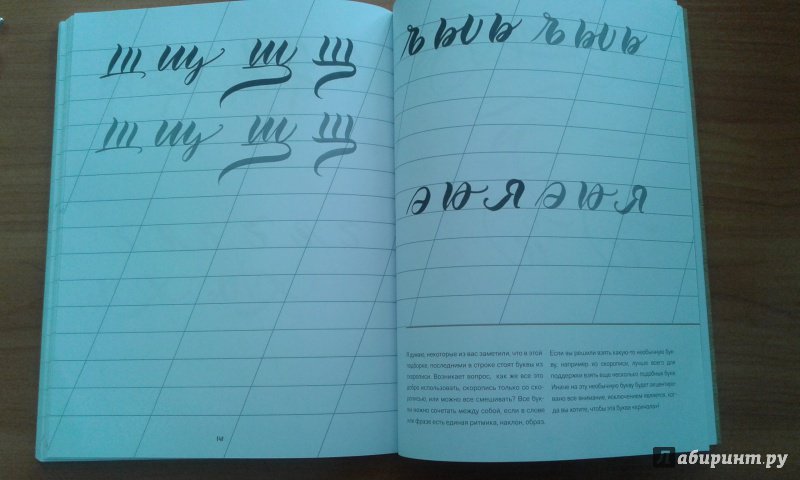 ш щ щ щ
ш щ щ щ
ъ ы ь ъ ы ь
э ю я э ю я
Я думаю, некоторые из вас заметили, что в этой
подборке, последними в строке стоят буквы из
скорописи. Возникает вопрос, как же все это
добро использовать, скоропись только со ско-
рописью, или можно все смешивать? Все бук-
вы можно сочетать между собой, если в слове
или фразе есть единая ритмика, наклон, образ.
Если вы решили взять какую-то необычную бук-
ву, например из скорописи, лучше всего для
поддержки взять еще несколько подобных букв.
Иначе на эту необычную букву будет акцентиро-
вано все внимание, исключением является, ког-
да вы хотите, чтобы эта буква «кричала»!
Лабиринт.ру